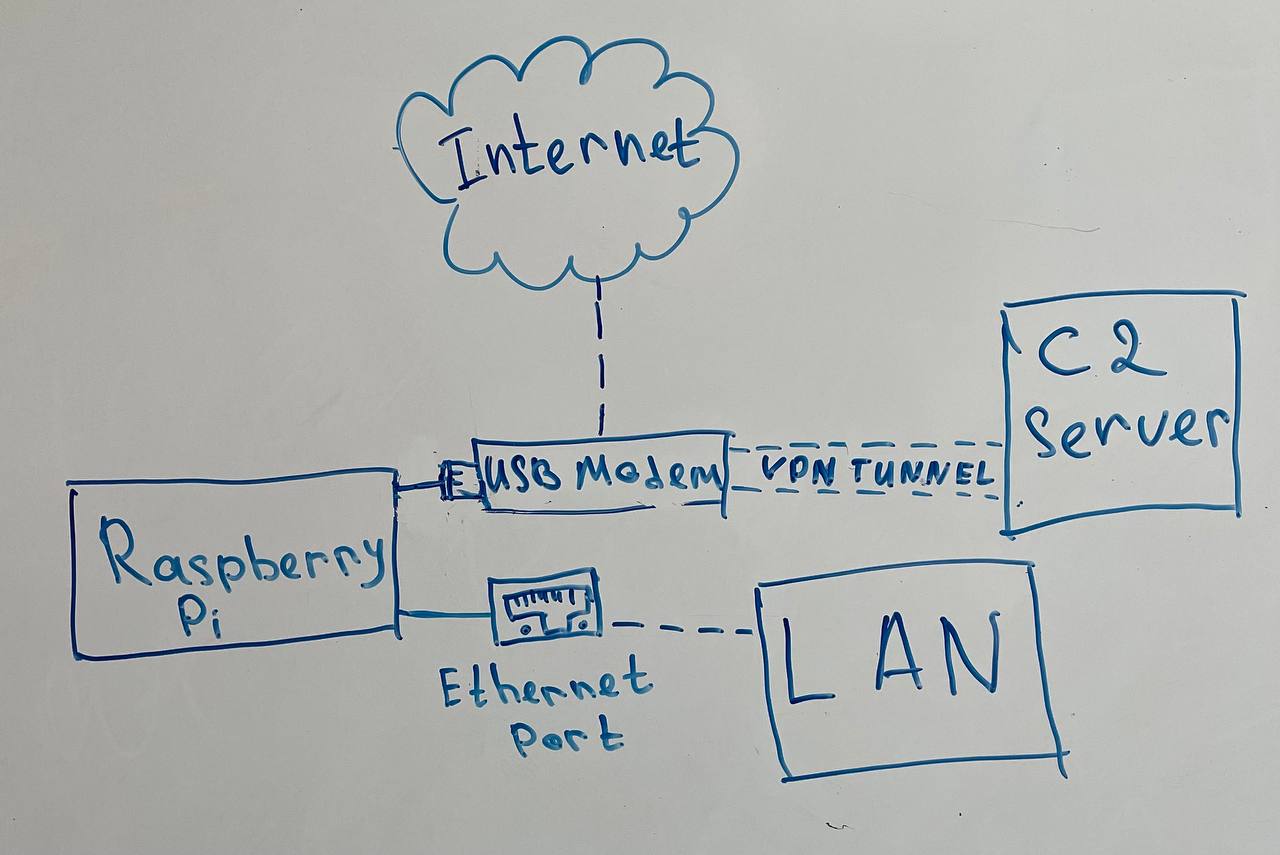 Internet
C2
Server
USB Modem
VPN TUNNEL
Raspberry
Pi
LAN
Ethernet
Port